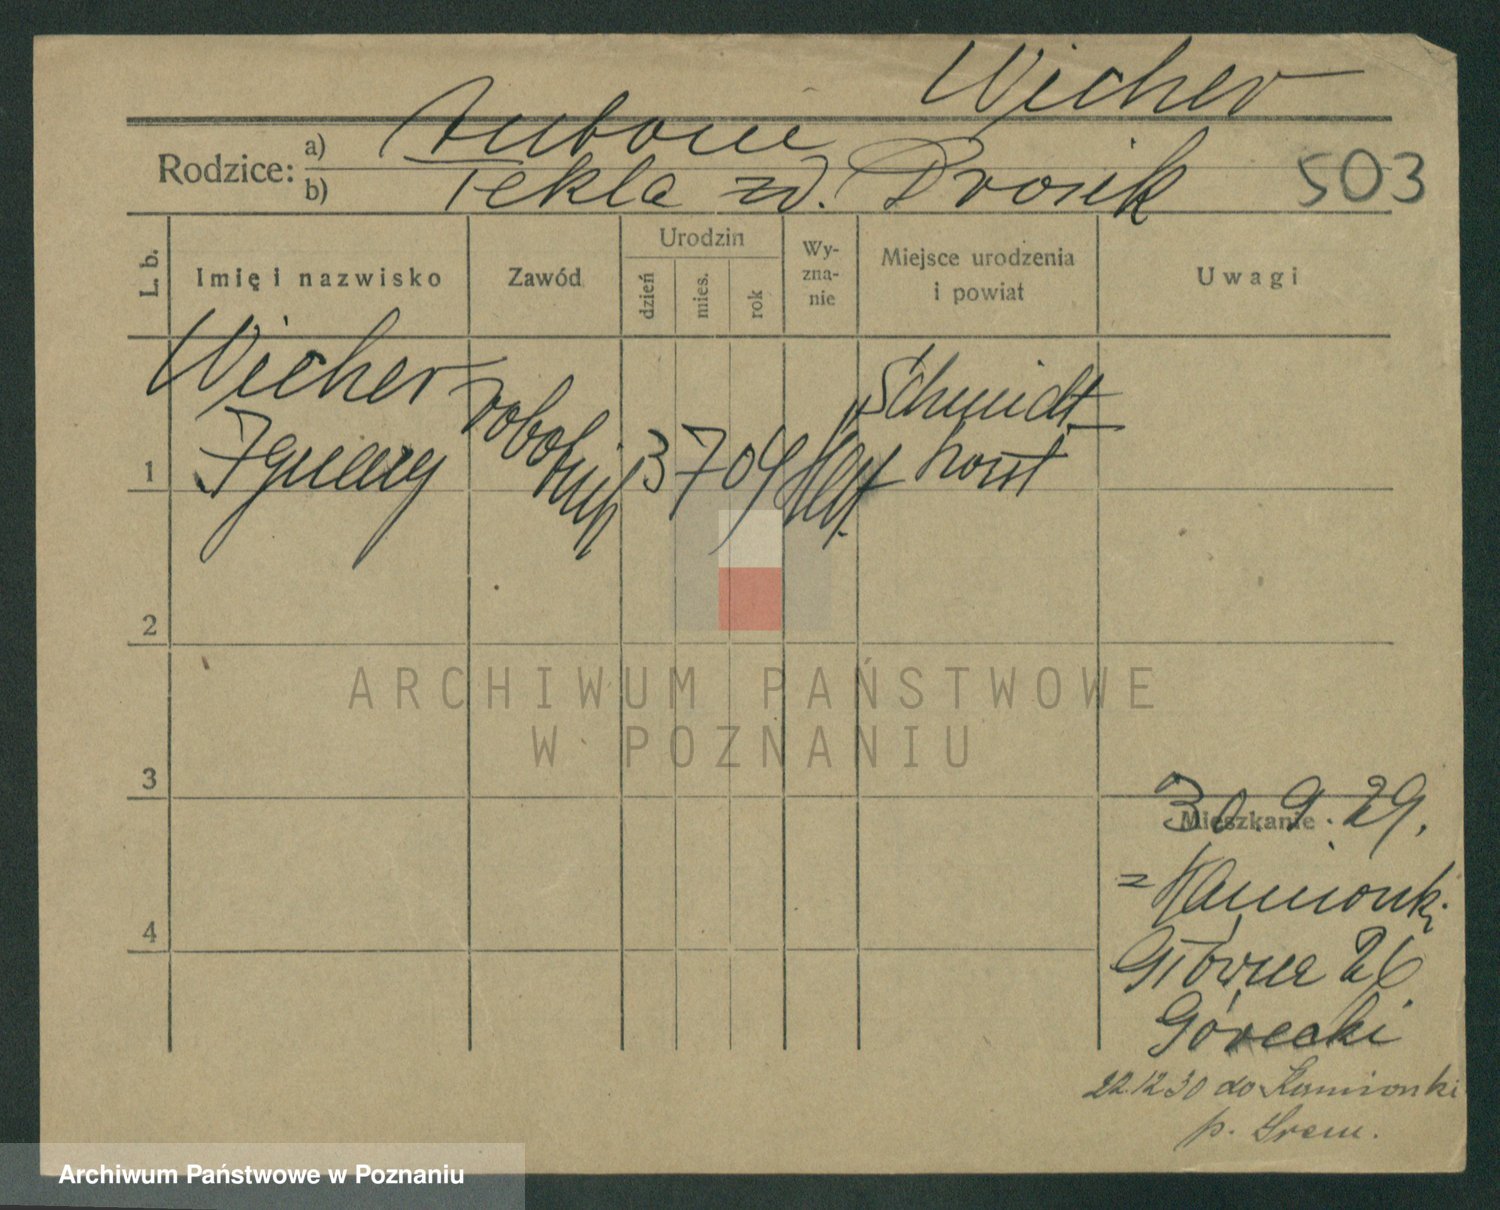 Wicher
Rodzice: a) Antoni
b) Tekla zd. Prosik
503
L. b.
Imię i nazwisko
Zawód
Urodzin
dzień
mies.
rok
Wy-
zna-
nie
Miejsce urodzenia
i powiat
Uwagi
1
Wicher
Ignacy
robotnik
3 7 09
Schmidt
horst
2
3
4
Mieszkanie
30. 9. 29.
= Kamionki
Główna 26
Górecki
22.12.30 do Kamionki
p. Śrem.
ARCHIWUM PAŃSTWOWE
W POZNANIU
Archiwum Państwowe w Poznaniu